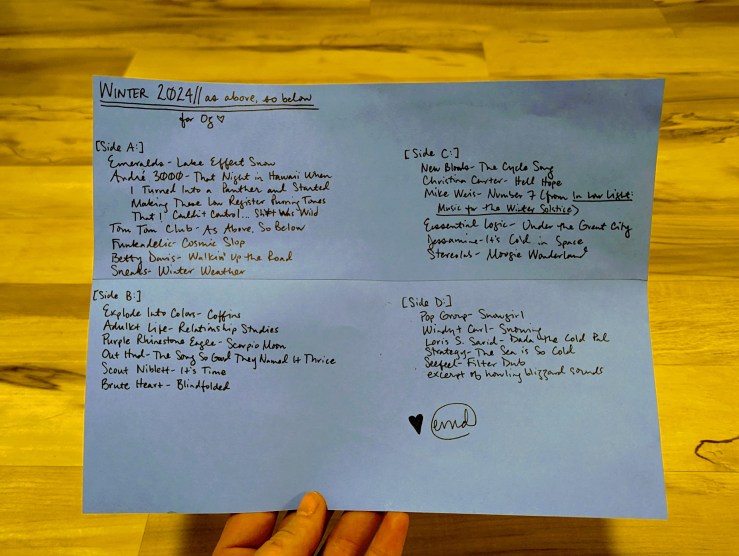 WINTER 2024// as above, so below
for Og ♡
[Side A:]
Emeralds - Lake Effect Snow
André 3000 - That Night in Hawaii When
I Turned Into a Panther and Started
Making These Low Register Purring Tones
That I Couldn't Control... Sh*t Was Wild
Tom Tom Club - As Above, So Below
Funkadelic - Cosmic Slop
Betty Davis - Walkin' Up the Road
Sneaks - Winter Weather
[Side B:]
Explode Into Colors - Coffins
Adulkt Life - Relationship Studies
Purple Rhinestone Eagle - Scorpio Moon
Out Hud - The Song So Good They Named It Thrice
Scout Niblett - It's Time
Brute Heart - Blindfolded
[Side C:]
New Bloods - The Cycle Song
Christina Carter - Hell Hope
Mike Weis - Number 7 (from In Low Light:
Music for The Winter Solstice)
Essential Logic - Under the Great City
Dessamine - It's Cold in Space
Stereolab - Moogie Wonderland
[Side D:]
Pop Group - Snowgirl
Windy + Carl - Snowing
Loris S. Sarid - Dada the Cold Pal
Strategy - The Sea is So Cold
Seefeel - Filter Dub
excerpt of howling blizzard sounds
♥